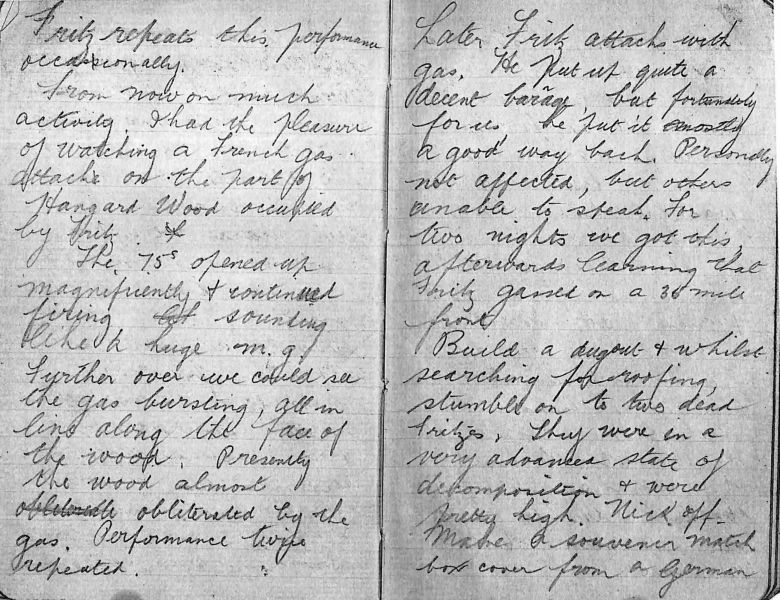 Fritz repeats this performance
occassionally.
From now on much
activity. I had the pleasure
of watching a French gas
attack on the part of
Hangard Wood occupied
by Fritz.
The 75s opened up
magnificently & continued
firing sounding
like a huge m.g.
Further over we could see
the gas bursting, all in
line along the face of
the wood. Presently
the wood almost
obliterated by the
gas. Performance twice
repeated.
Later Fritz attacks with
gas. He put up quite a
decent barage, but fortunately
for us, he put it mostly
a good way back. Personally
not affected, but others
unable to speak. For
two nights we got this,
afterwards learning that
Fritz gassed on a 30 mile
front.
Build a dugout & whilst
searching for roofing,
stumble on to two dead
Fritzes. They were in a
very advanced state of
decomposition & were
pretty high. Nick off.
Made a souvenir match
box cover from a German